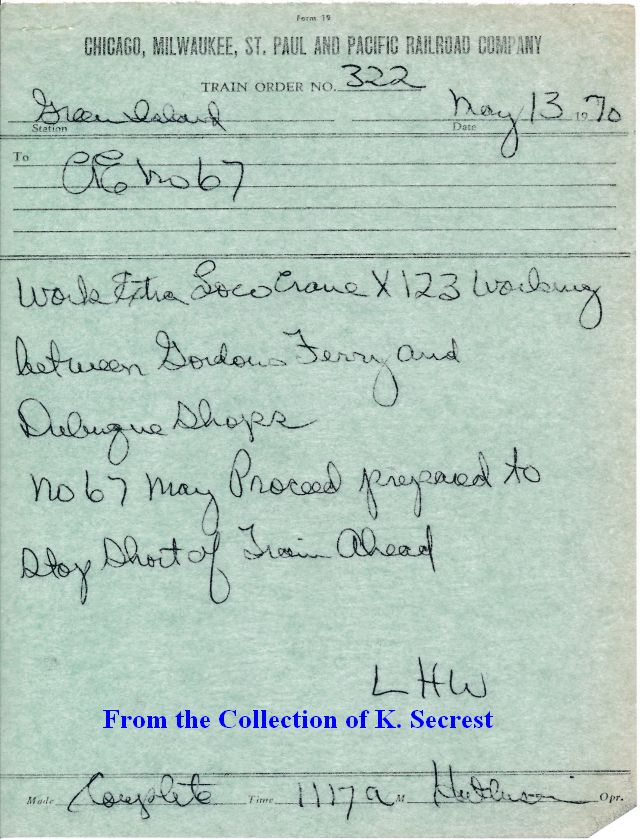 Form 19
CHICAGO, MILWAUKEE, ST. PAUL AND PACIFIC RAILROAD COMPANY
TRAIN ORDER NO. 322
Green Island May 13 1970
Station Date
To C&E No 67
Work Extra Loco Crane X 123 Working
between Gordons Ferry and
Dubuque Shops
No 67 May Proceed prepared to
Stop Short of Train Ahead
LHW
From the Collection of K. Secrest
Made Complete Time 1117 a M Opr.